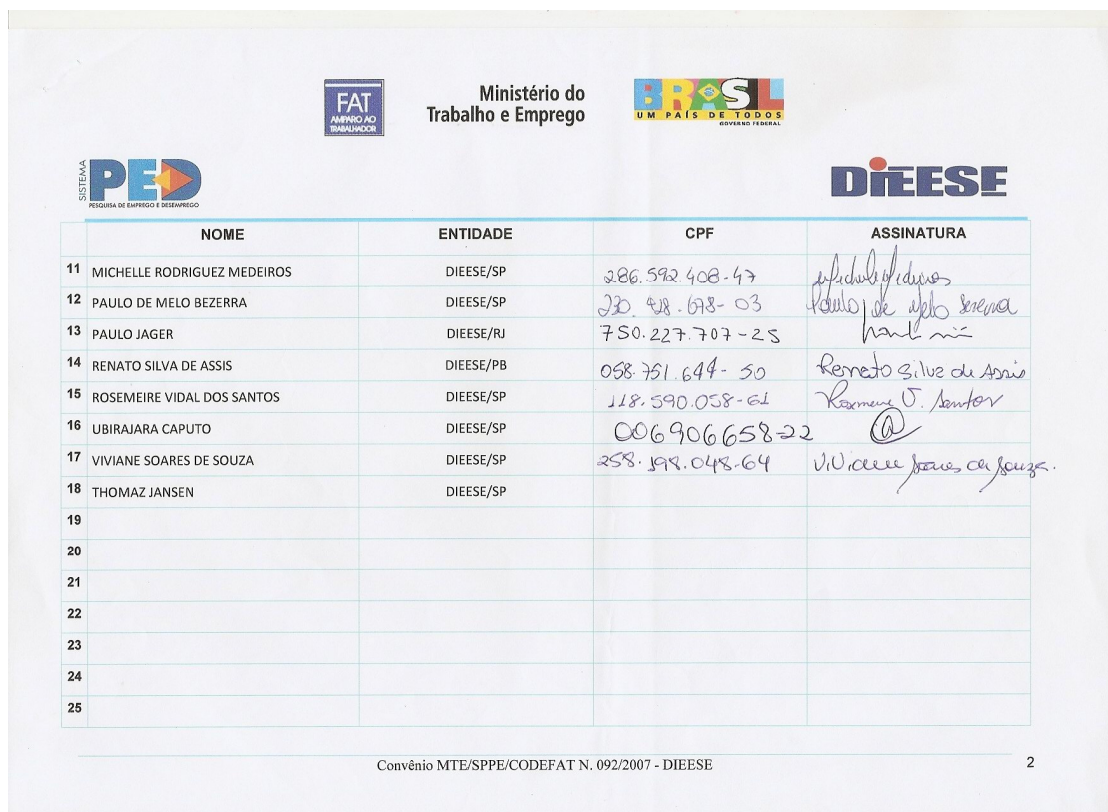 FAT
AMPARO AO
TRABALHADOR
Ministério do
Trabalho e Emprego
BRASIL
UM PAÍS DE TODOS
GOVERNO FEDERAL
SISTEMA
PED
PESQUISA DE EMPREGO E DESEMPREGO
DIEESE
NOME ENTIDADE CPF ASSINATURA
11 MICHELLE RODRIGUEZ MEDEIROS DIEESE/SP 286.592.408-47
12 PAULO DE MELO BEZERRA DIEESE/SP Paulo de Melo Bezerra
13 PAULO JAGER DIEESE/RJ 750.227.707-25
14 RENATO SILVA DE ASSIS DIEESE/PB 058.751.644-50 Renato Silva de Assis
15 ROSEMEIRE VIDAL DOS SANTOS DIEESE/SP 118.590.058-61 Rosmeire V. Santos
16 UBIRAJARA CAPUTO DIEESE/SP 006906658-22
17 VIVIANE SOARES DE SOUZA DIEESE/SP 258.198.048-64 Viviane Soares de Souza.
18 THOMAZ JANSEN DIEESE/SP
19
20
21
22
23
24
25
Convênio MTE/SPPE/CODEFAT N. 092/2007 - DIEESE 2